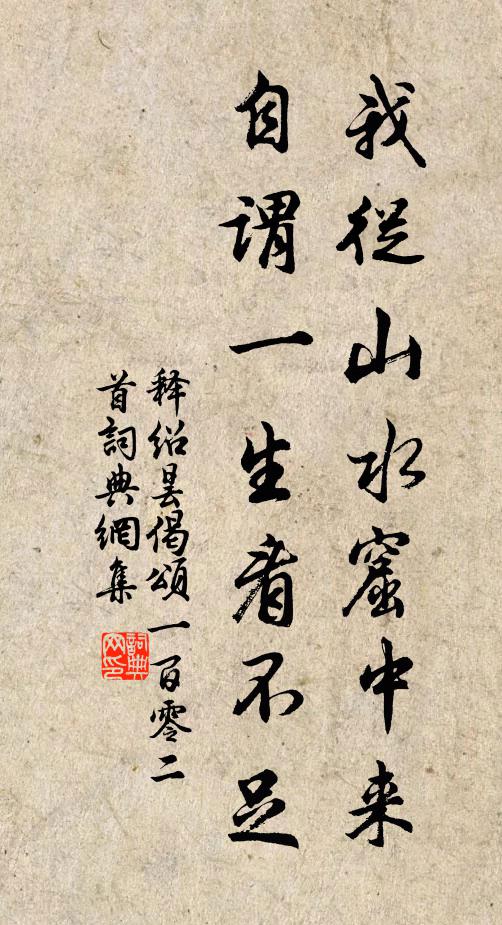 我從山水窟中来
自謂一生看不足
释绍昙偈頌一百零二
首詞典網集
詞典
网印